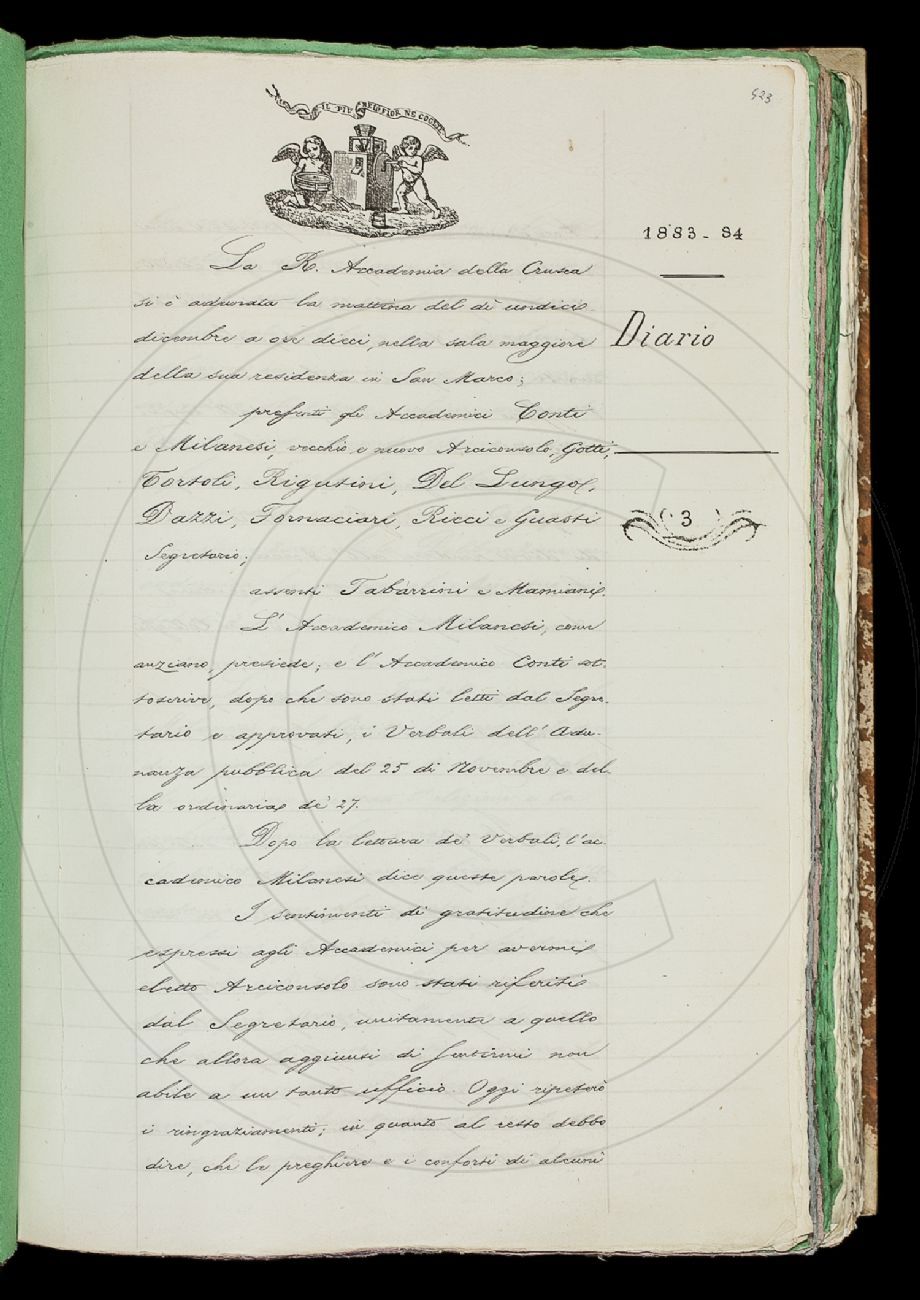 523
IL PIÙ BEL FIOR NE COGLIE
1883-84
Diario
3
La R. Accademia della Crusca
si è adunata la mattina del dì undici
dicembre a ore dieci, nella sala maggiore
della sua residenza in San Marco;
presenti gli Accademici Conti
e Milanesi, vecchio e nuovo Arciconsolo, Gotti,
Tortoli, Rigutini, Del Lungo,
Dazzi, Fornaciari, Ricci e Guasti
Segretario;
assenti Tabarrini e Mamiani.
L'Accademico Milanesi, come
anziano, presiede; e l'Accademico Conti sot-
toscrive, dopo che sono stati letti dal Segre-
tario e approvati, i Verbali dell'Adu-
nanza pubblica del 25 di Novembre e del-
la ordinaria de' 27.
Dopo la lettura de' Verbali, l'ac-
cademico Milanesi dice queste parole.
I sentimenti di gratitudine che
espressi agli Accademici per avermi
eletto Arciconsolo sono stati riferiti
dal Segretario, unitamente a quello
che allora aggiunsi di sentirmi non
abile a un tanto ufficio. Oggi ripeterò
i ringraziamenti; in quanto al resto debbo
dire, che le preghiere e i conforti di alcuni